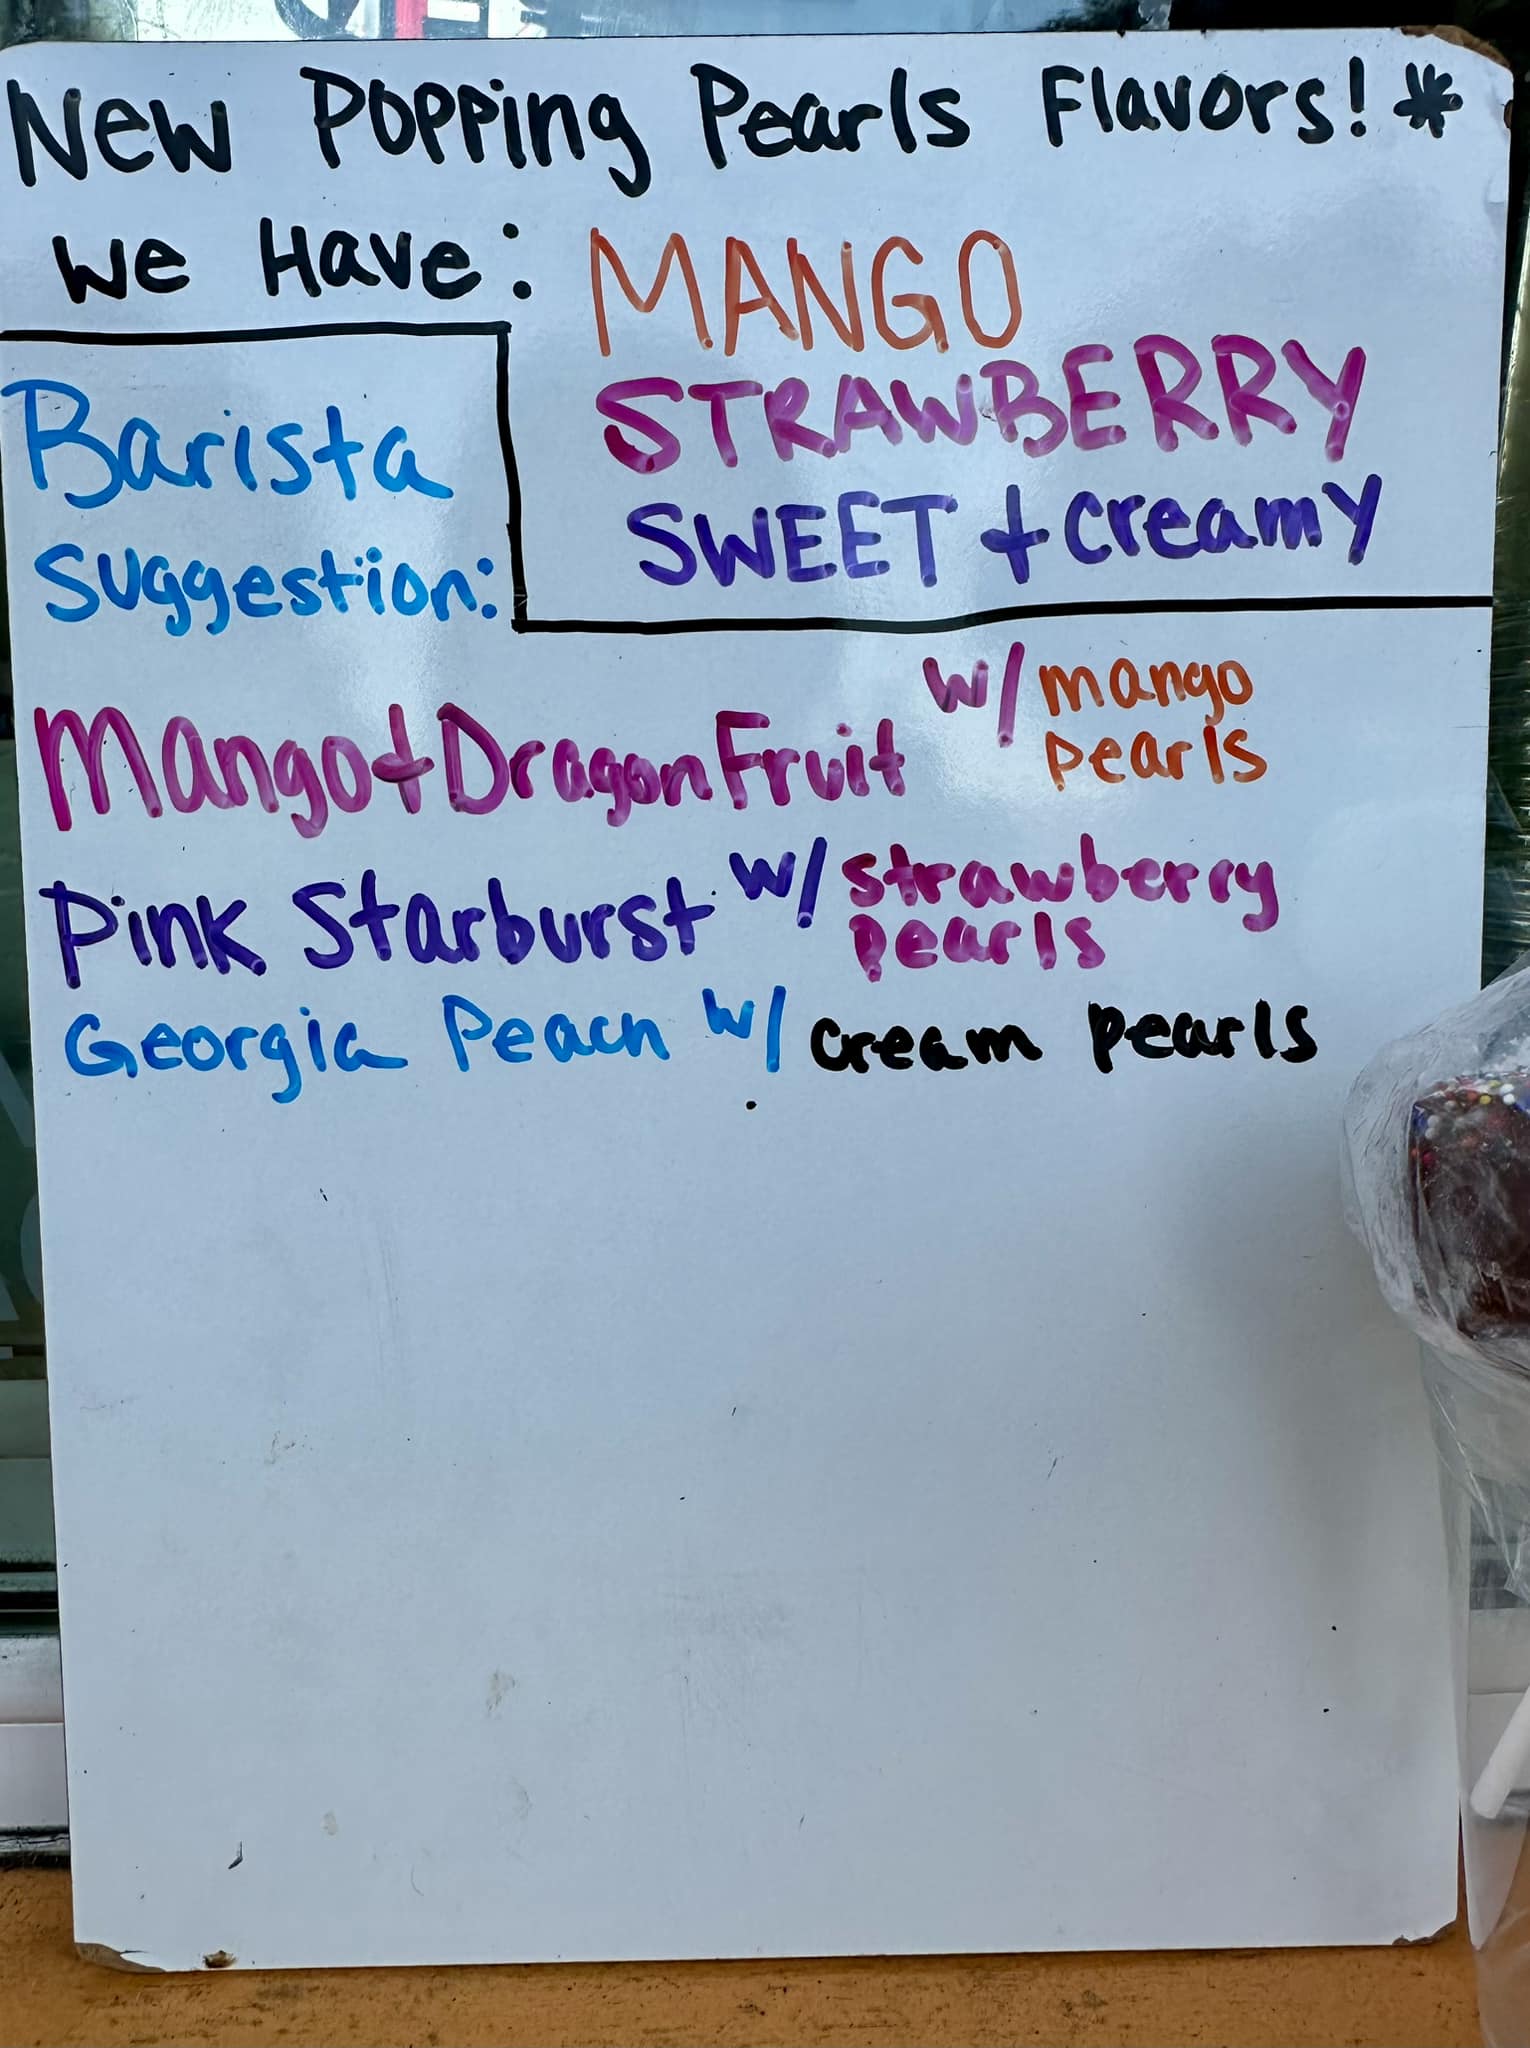 New Popping Pearls Flavors! *
We Have: MANGO
STRAWBERRY
SWEET + Creamy
Barista
Suggestion:
Mango + Dragon Fruit w/ mango
pearls
Pink Starburst w/ strawberry
pearls
Georgia Peach w/ cream pearls